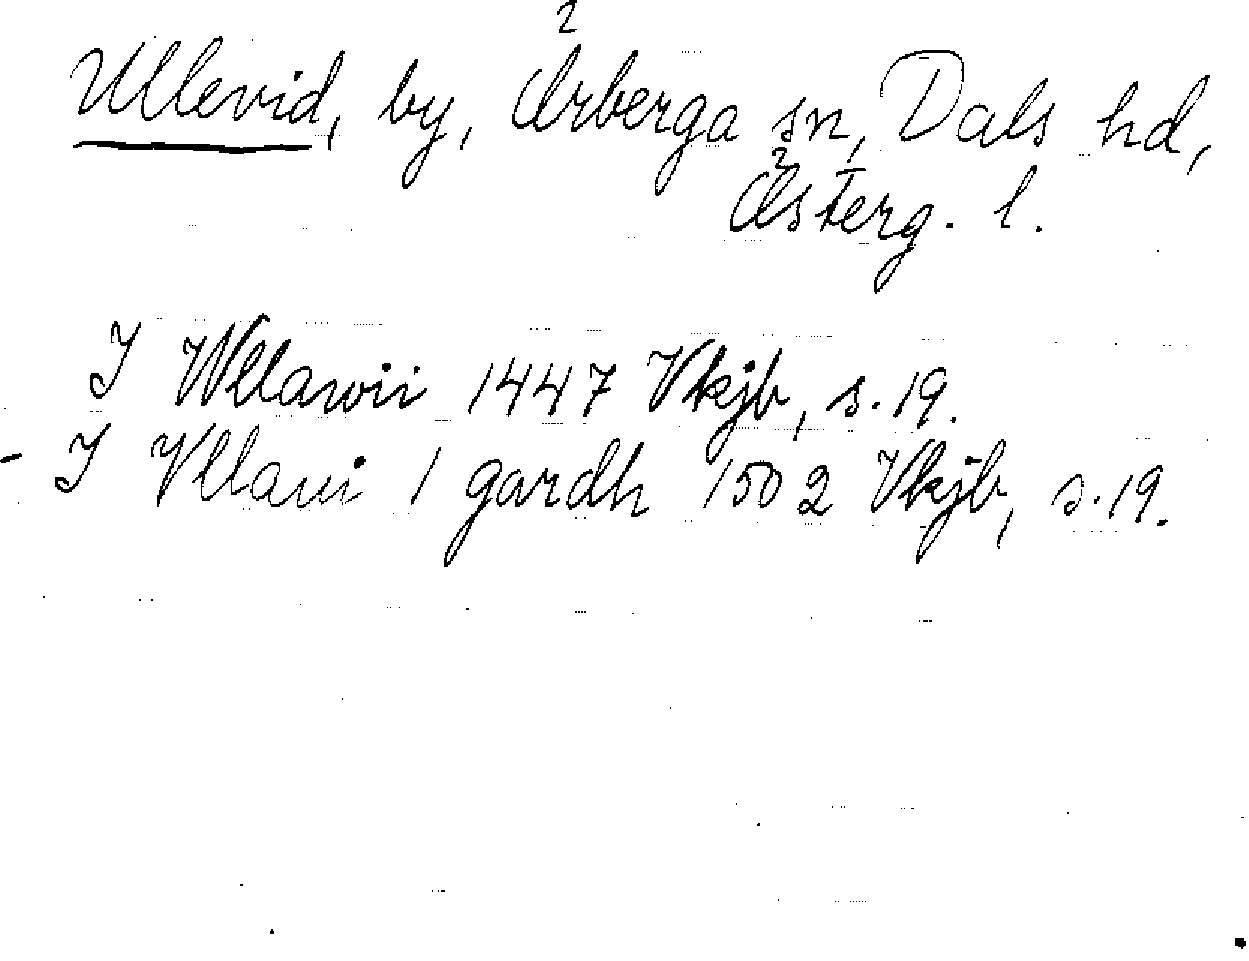 Ullevid, by, Örberga sn, Dals hd,
Österg. l.
I Wllawii 1447 Vkjb, s. 19.
- I Vllaui 1 gardh 1502 Vkjb, s. 19.